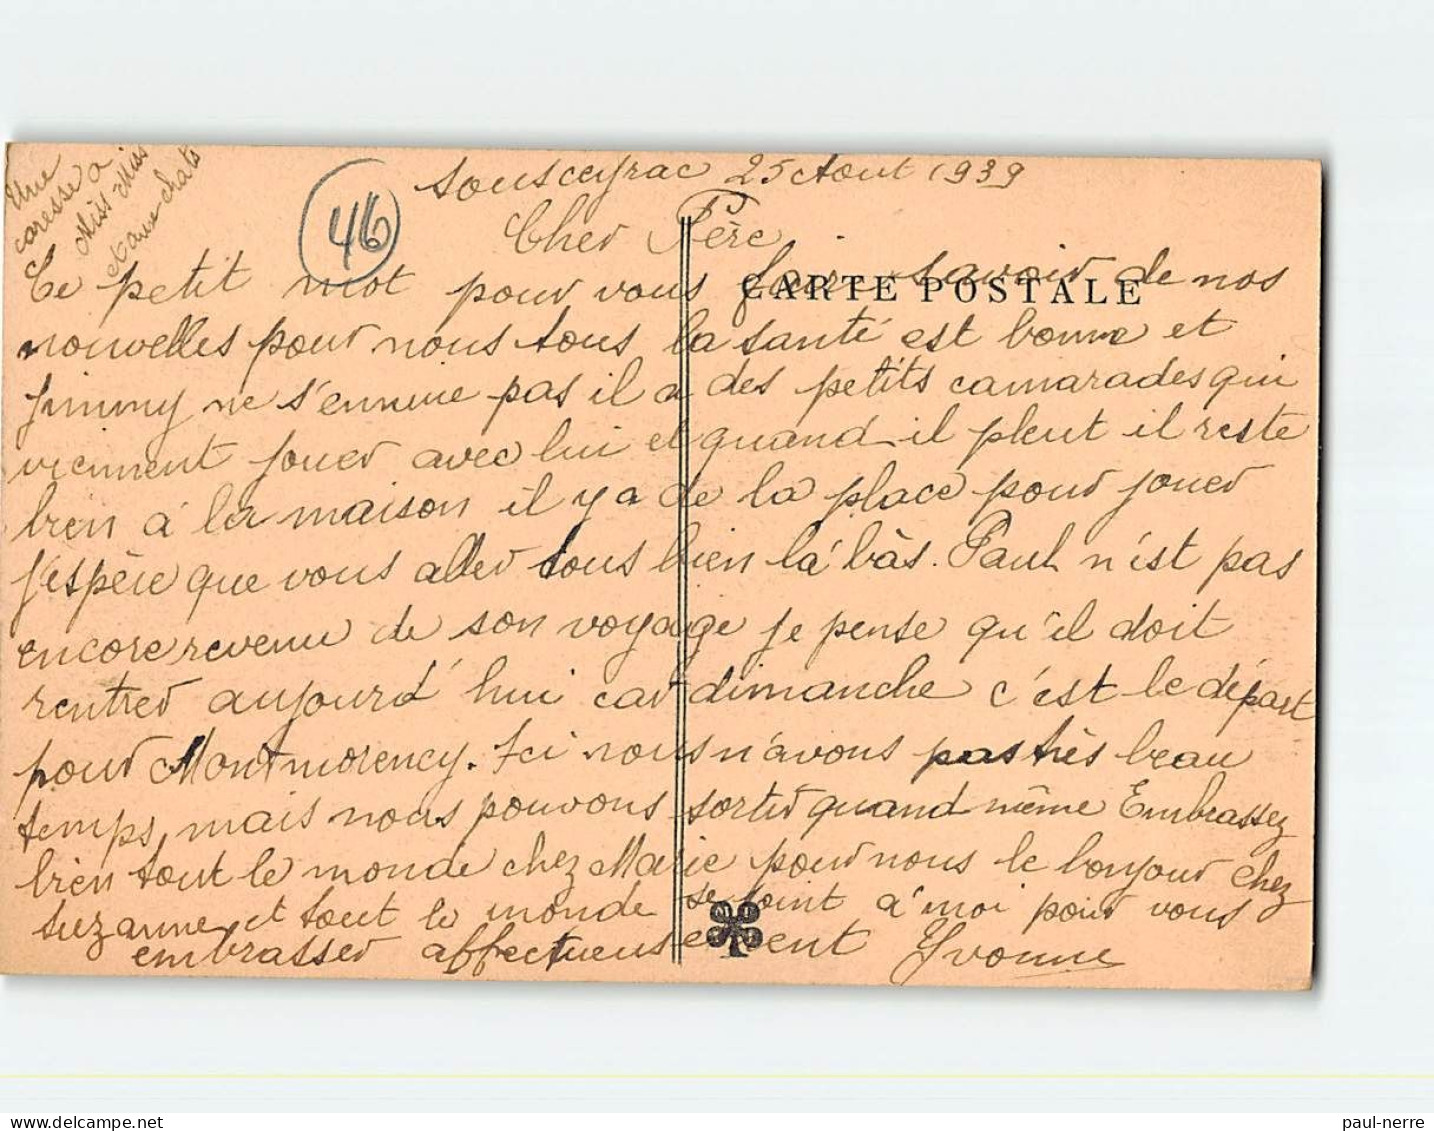 Une
caresse a
Miss Miss
et aux chats
46
Sousceyrac 25 Aout 1939
Cher Père
CARTE POSTALE
Ce petit mot pour vous faire savoir de nos
nouvelles pour nous tous la santé est bonne et
Jimmy ne s'ennuie pas il a des petits camarades qui
viennent jouer avec lui et quand il pleut il reste
bien à la maison il y a de la place pour jouer
j'espère que vous aller tous bien là bàs. Paul n'est pas
encore revenu de son voyage je pense qu'il doit
rentrer aujourd'hui car dimanche c'est le départ
pour Montmorency. Ici nous n'avons pas très beau
temps, mais nous pouvons sortir quand même Embrassez
bien tout le monde chez Marie pour nous le bonjour chez
Suzanne et tout le monde se joint à moi pour vous
embrasser affectueusement Yvonne
paul-nerre